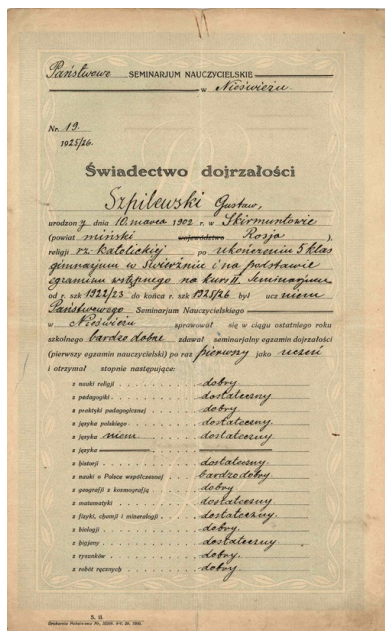 Państwowe SEMINARJUM NAUCZYCIELSKIE
w Nieświeżu.
Nr. 19.
1925/26.
Świadectwo dojrzałości
Szpilewski Gustaw,
urodzony dnia 10. marca 1902 r. w Skirmuntowie
(powiat miński województwo Rosja ),
religji rz.-katolickiej po ukończeniu 5 klas
gimnazjum w Świerżniu i na podstawie
egzaminu wstępnego na kurs II. Seminarjum
od r. szk 1922/23 do końca r. szk 1925/26 był uczniem
Państwowego Seminarjum Nauczycielskiego
w Nieświeżu sprawował się w ciągu ostatniego roku
szkolnego bardzo dobrze zdawał seminarjalny egzamin dojrzałości
(pierwszy egzamin nauczycielski) po raz pierwszy jako uczeń
i otrzymał stopnie następujące:
z nauki religji dobry
z pedagogiki dostateczny
z praktyki pedagogicznej dobry
z języka polskiego dostateczny.
z języka niem. dostateczny
z języka
z historji dostateczny.
z nauki o Polsce współczesnej bardzo dobry.
z geografji z kosmografją dobry
z matematyki dostateczny
z fizyki, chemji i mineralogji dostateczny.
z biologji dobry.
z higjeny dostateczny
z rysunków dobry.
z robót ręcznych dobry.
S. II.